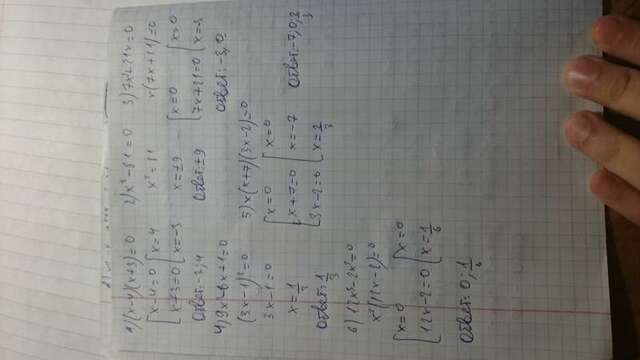 1) (x-4)(x+3)=0
[x-4=0 [x=4
[x+3=0 [x=-3
Ответ: -3,4
2) x²-81=0
x²=81
x=±9
Ответ: ±9
3) 7x²+21x=0
x(7x+21)=0
[x=0 [x=0
[7x+21=0 [x=-3
Ответ: -3,0
4) 9x²-6x+1=0
(3x-1)²=0
3x-1=0
x=1/3
Ответ: 1/3
5) x(x+7)(3x-2)=0
[x=0 [x=0
[x+7=0 [x=-7
[3x-2=0 [x=2/3
Ответ: -7,0,2/3
6) 12x³-2x²=0
x²(12x-2)=0
[x=0 [x=0
[12x-2=0 [x=1/6
Ответ: 0,1/6